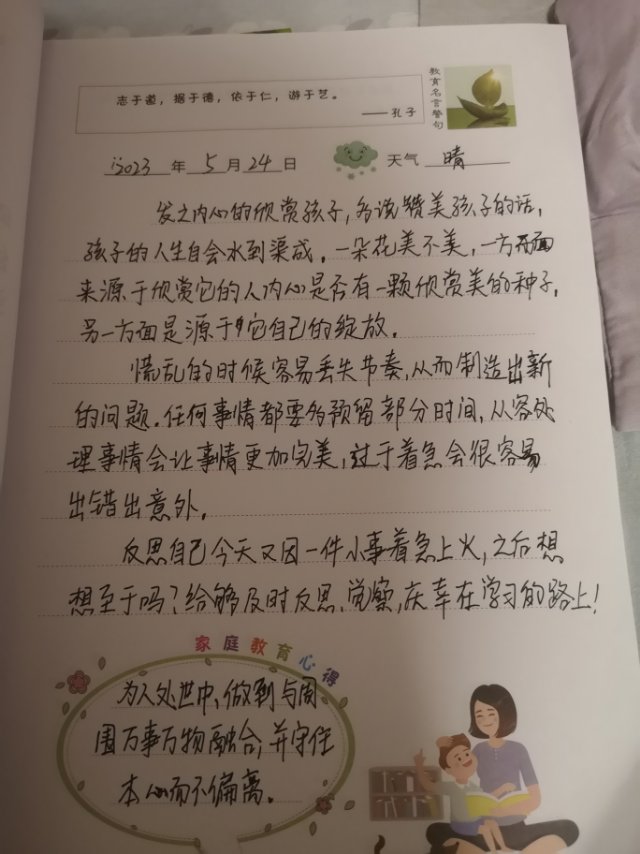 志于道，据于德，依于仁，游于艺。
——孔子
教育名言警句
2023 年 5 月 24 日 天气 晴
发之内心的欣赏孩子，多说赞美孩子的话，
孩子的人生自会水到渠成。一朵花美不美，一方面
来源于欣赏它的人内心是否有一颗欣赏美的种子，
另一方面是源于它自己的绽放。
慌乱的时候容易丢失节奏，从而制造出新
的问题。任何事情都要多预留部分时间，从容处
理事情会让事情更加完美，过于着急会很容易
出错出意外。
反思自己今天又因一件小事着急上火，之后想
想至于吗？能够及时反思、觉察，庆幸在学习的路上！
家庭教育心得
为人处世中，做到与周
围万事万物融合，并守住
本心而不偏离。